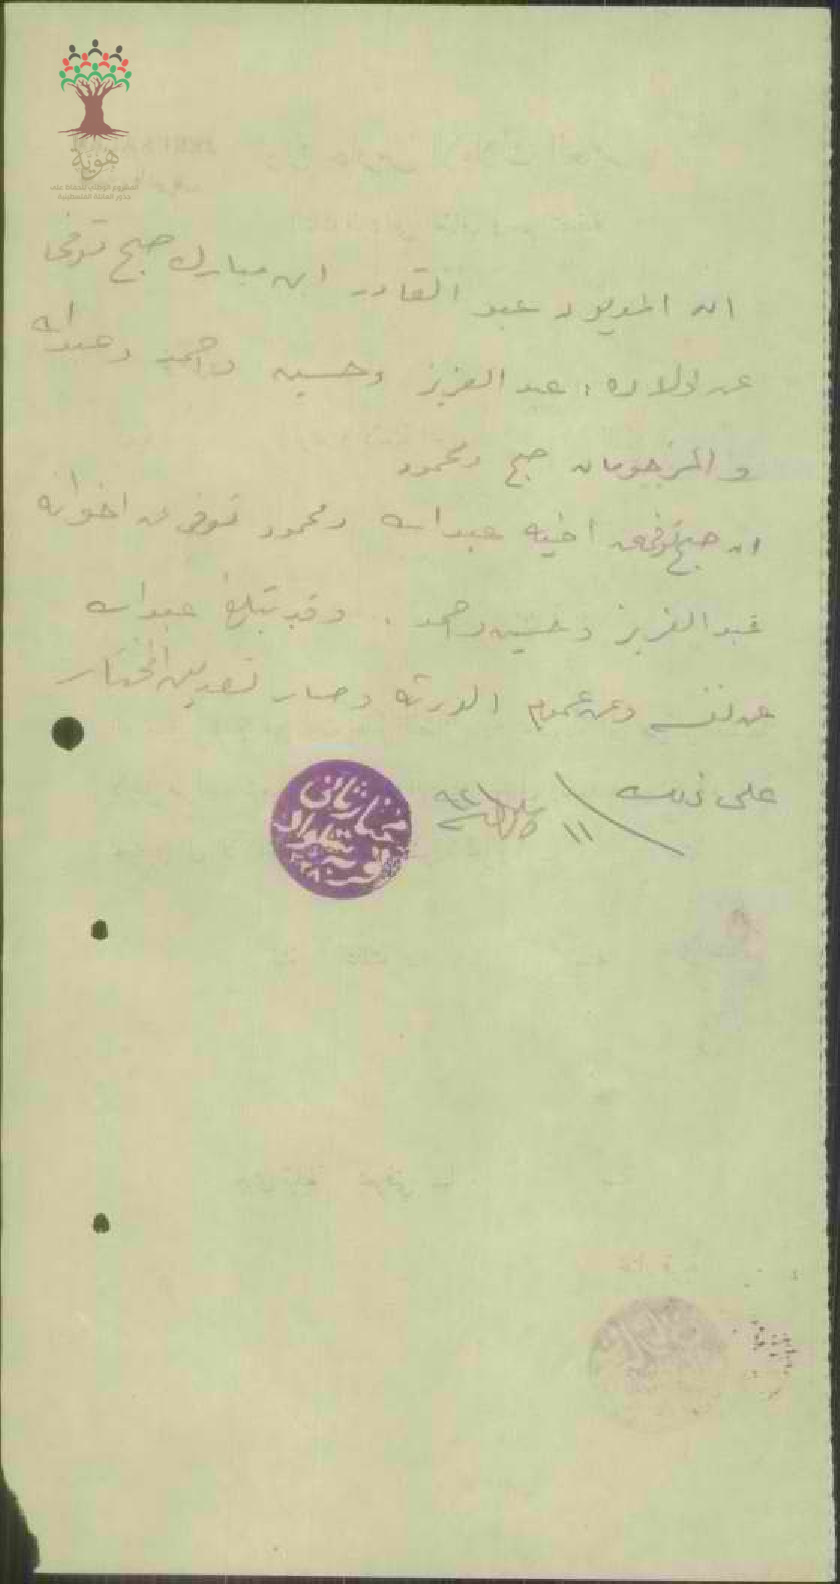 هوية
المشروع الوطني للحفاظ على
جذور العائلة الفلسطينية
ان المديون عبد القادر ابن مبارك صبح توفى
عن اولاده : عبد العزيز وحسين واحمد وعبدالله
و المرحومان صبح ومحمود
ان صبح توفى عن اخيه عبدالله ومحمود توفى عن اخوانه
عبد العزيز وحسين واحمد . وقد تبلغ عبدالله
عن نفسه وعن عموم الورثة وصار تصديق المختار
على ذلك
مختار ثاني
قرية سلواد